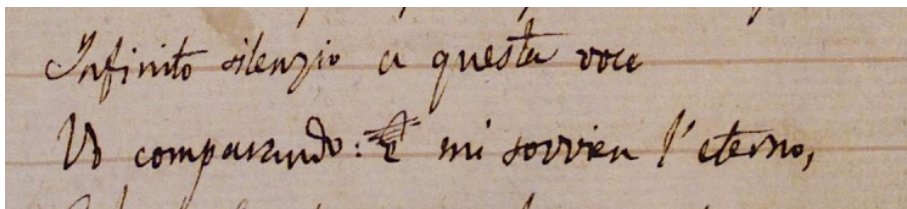 Infinito silenzio a questa voce
Vo comparando: e mi sovvien l'eterno,